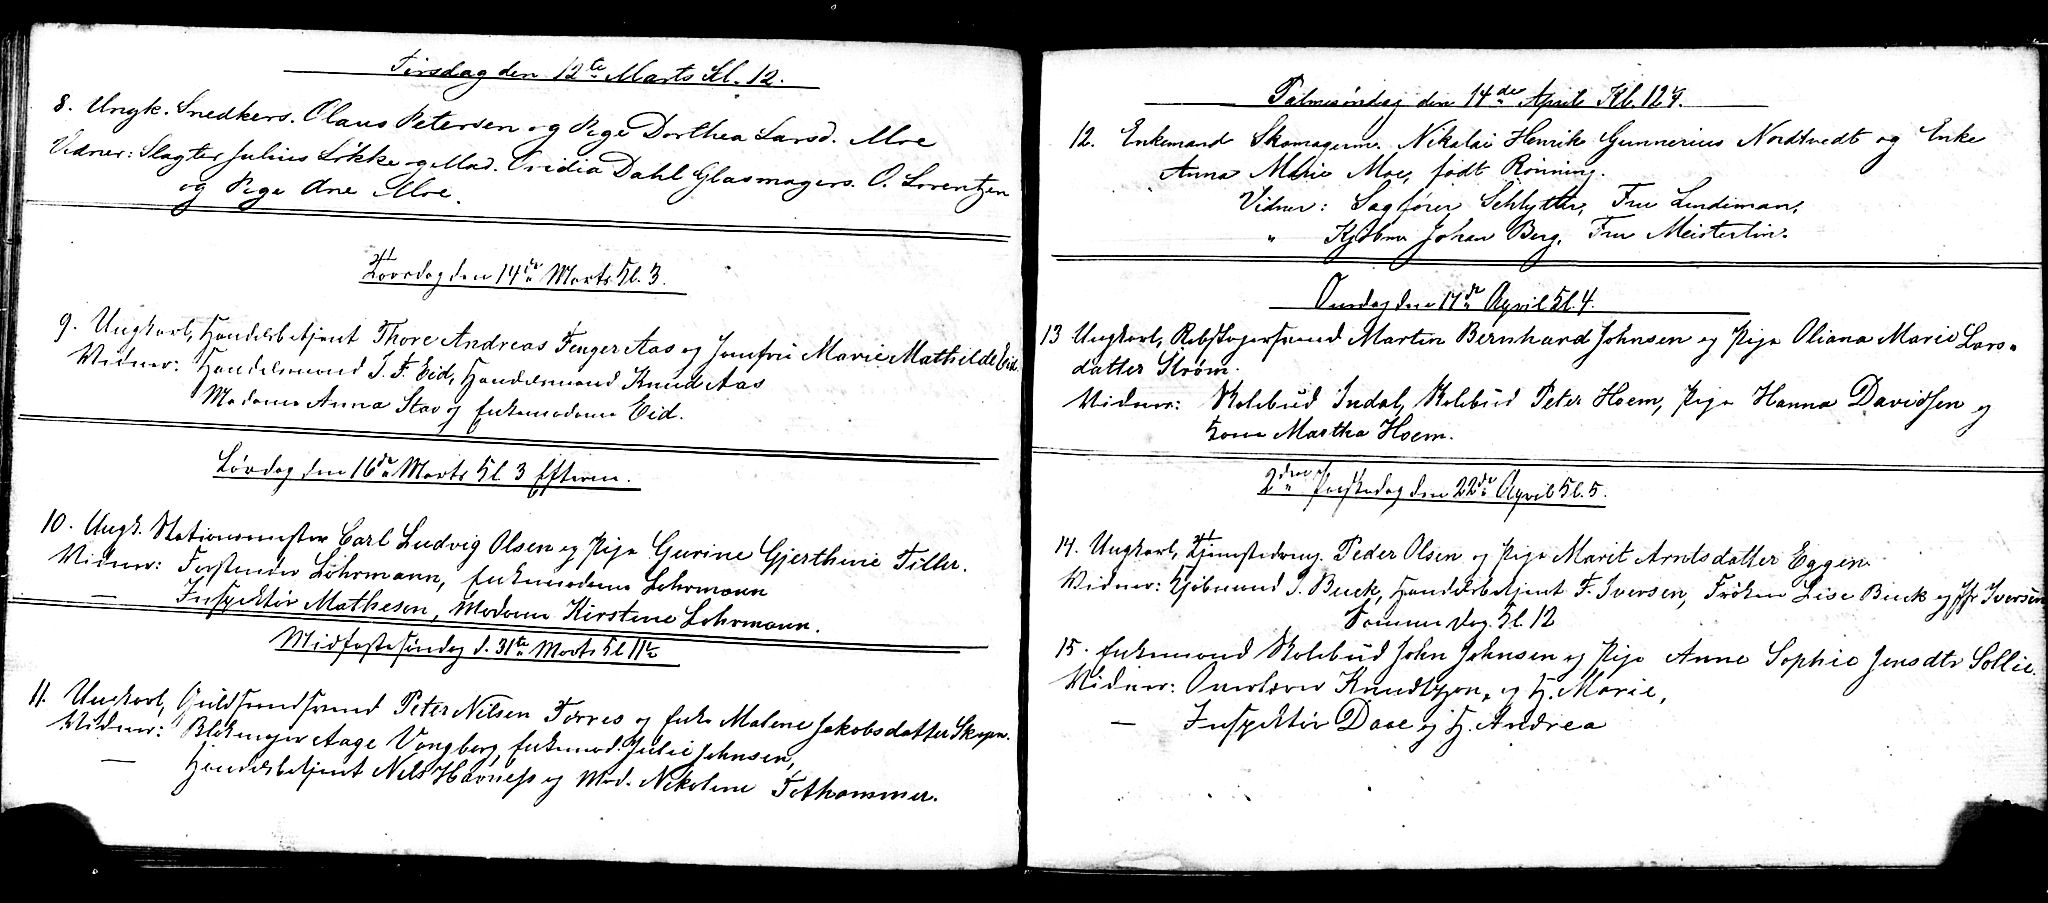 Tirsdag den 12te Marts Kl. 12.
8. Ungk. Snedkers. Olaus Petersen og Pige Dorthea Larsd. Moe
Vidner: Slagter Julius Løkke og Mad. Ovidia Dahl Glasmagers. O. Lorentzen
og Pige Ane Moe.
Torsdag den 14de Marts Kl. 3.
9. Ungkarl, Handelsbetjent Thore Andreas Fenger Aas og Jomfru Marie Mathilde Eid.
Vidner: Handelsmand J. F. Eid, Handelsmand Knud Aas
Madame Anna Stav og Enkemadame Eid.
Lørdag den 16de Marts Kl. 3 Efterm.
10. Ungk. Stationsmester Carl Ludvig Olsen og Pige Gurine Gjerthine Tiller.
Vidner: Forstander Lohrmann, Enkemadame Lohrmann
— Inspektør Mathesen, Madame Kirstine Lohrmann.
Midfastesøndag d. 31te Marts Kl 11½
11. Ungkarl, Guldsmedsvend Peter Nilsen Førres og Enke Malene Jakobsdatter Skogn.
Vidner: Blikmager Aage Vongberg, Enkemad. Julie Johnsen,
— Handelsbetjent Nils Havness og Mad. Nikoline Fothammer.
Palmesøndag den 14de April Kl. 12¼.
12. Enkemand Skomagerm. Nikolai Henrik Gunnerius Nordtvedt og Enke
Anna Marie Moe, født Rønning.
Vidner: Sagfører Schlytter, Fru Lindiman,
" Kjøbm Johan Berg, Fru Meisterlin.
Onsdag den 17de April Kl. 4.
13 Ungkarl, Rebslagersvend Martin Bernhard Johnsen og Pige Oliana Marie Lars-
datter Strøm.
Vidner: Kolibud Indal, Kolibud Peter Hoem, Pige Hanna Davidsen og
Kone Martha Hoem.
2den Paaskedag den 22de April Kl. 5.
14. Ungkarl, Tjenestedreng Peder Olsen og Pige Marit Arntsdatter Eggen
Vidner: Kjøbmand J. Buck, Handelsbetjent F. Iversen, Frøken Lise Buck og Jfr Iversen
Samme Dag Kl. 12
15. Enkemand Kolibud John Johnsen og Pige Anne Sophie Jensdtr Sollie.
Vidner: Overlærer Knudtzon, og H. Marie,
— Inspektør Daae og H. Andrea